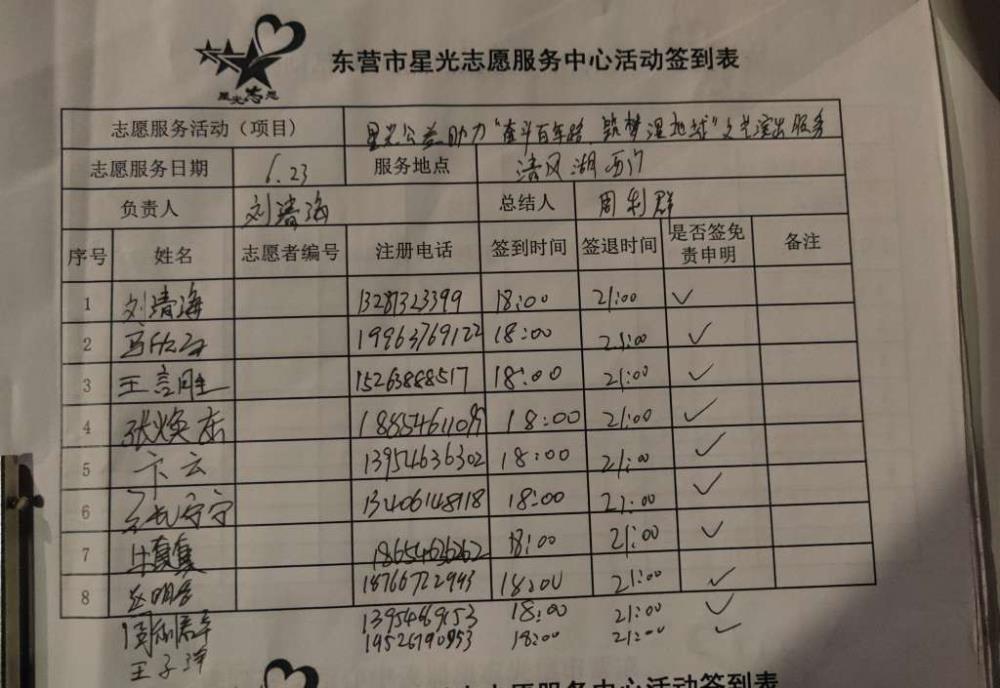 星光志愿
东营市星光志愿服务中心活动签到表
志愿服务活动（项目） 星光公益助力“奋斗百年路 筑梦湿地城”文艺演出服务
志愿服务日期 6.23 服务地点 清风湖西门
负责人 刘清海 总结人 周利群
序号 姓名 志愿者编号 注册电话 签到时间 签退时间 是否签免责申明 备注
1 刘清海 13287323399 18:00 21:00 ✓
2 19963769122 18:00 21:00 ✓
3 王言胜 15263888517 18:00 21:00 ✓
4 张焕东 18:00 21:00 ✓
5 卞云 13954636302 18:00 21:00 ✓
6 13406148118 18:00 21:00 ✓
7 18654626262 18:00 21:00 ✓
8 18766722943 18:00 21:00 ✓
周利群 18:00 21:00 ✓
王子洋 19526790953 18:00 21:00 ✓